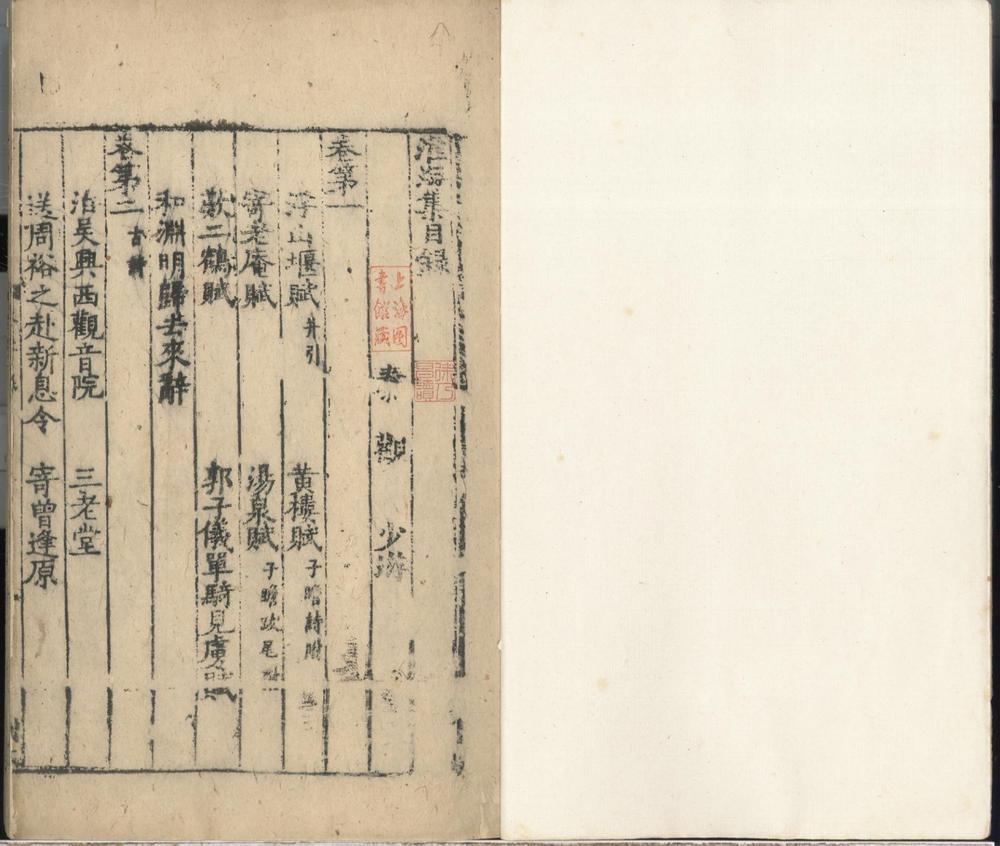 淮海集目録
秦觀 少游
卷第一
浮山堰賦 并引 黄樓賦 子瞻詩附
寄老庵賦 湯泉賦 子瞻跋尾附
歎二鶴賦 郭子儀單騎見虜賦
和淵明歸去來辭
卷第二 古詩
泊吳興西觀音院 三老堂
送周裕之赴新息令 寄曾逢原
上海圖書館藏